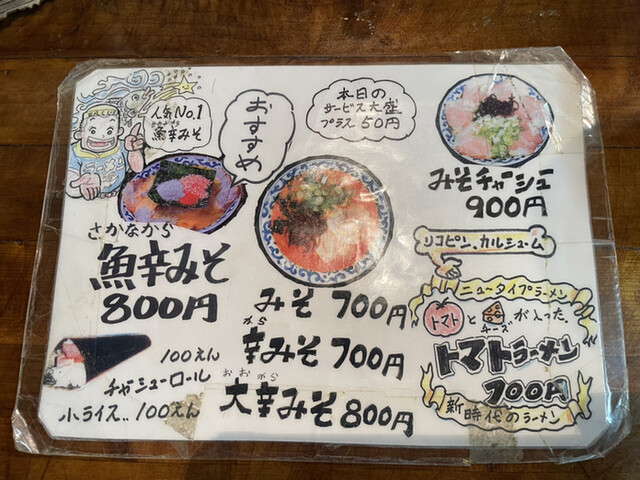 人気No.1
さかなから
魚辛みそ
おすすめ
本日の
サービス大盛
プラス50円
みそチャーシュー
900円
さかなから
魚辛みそ
800円
みそ 700円
から
辛みそ 700円
おおから
大辛みそ 800円
100えん
チャーシューロール
小ライス..100えん
リコピン、カルシューム
ニュータイプラーメン
トマトと
チーズ
が入った.
トマトラーメン
700円
新時代のラーメン